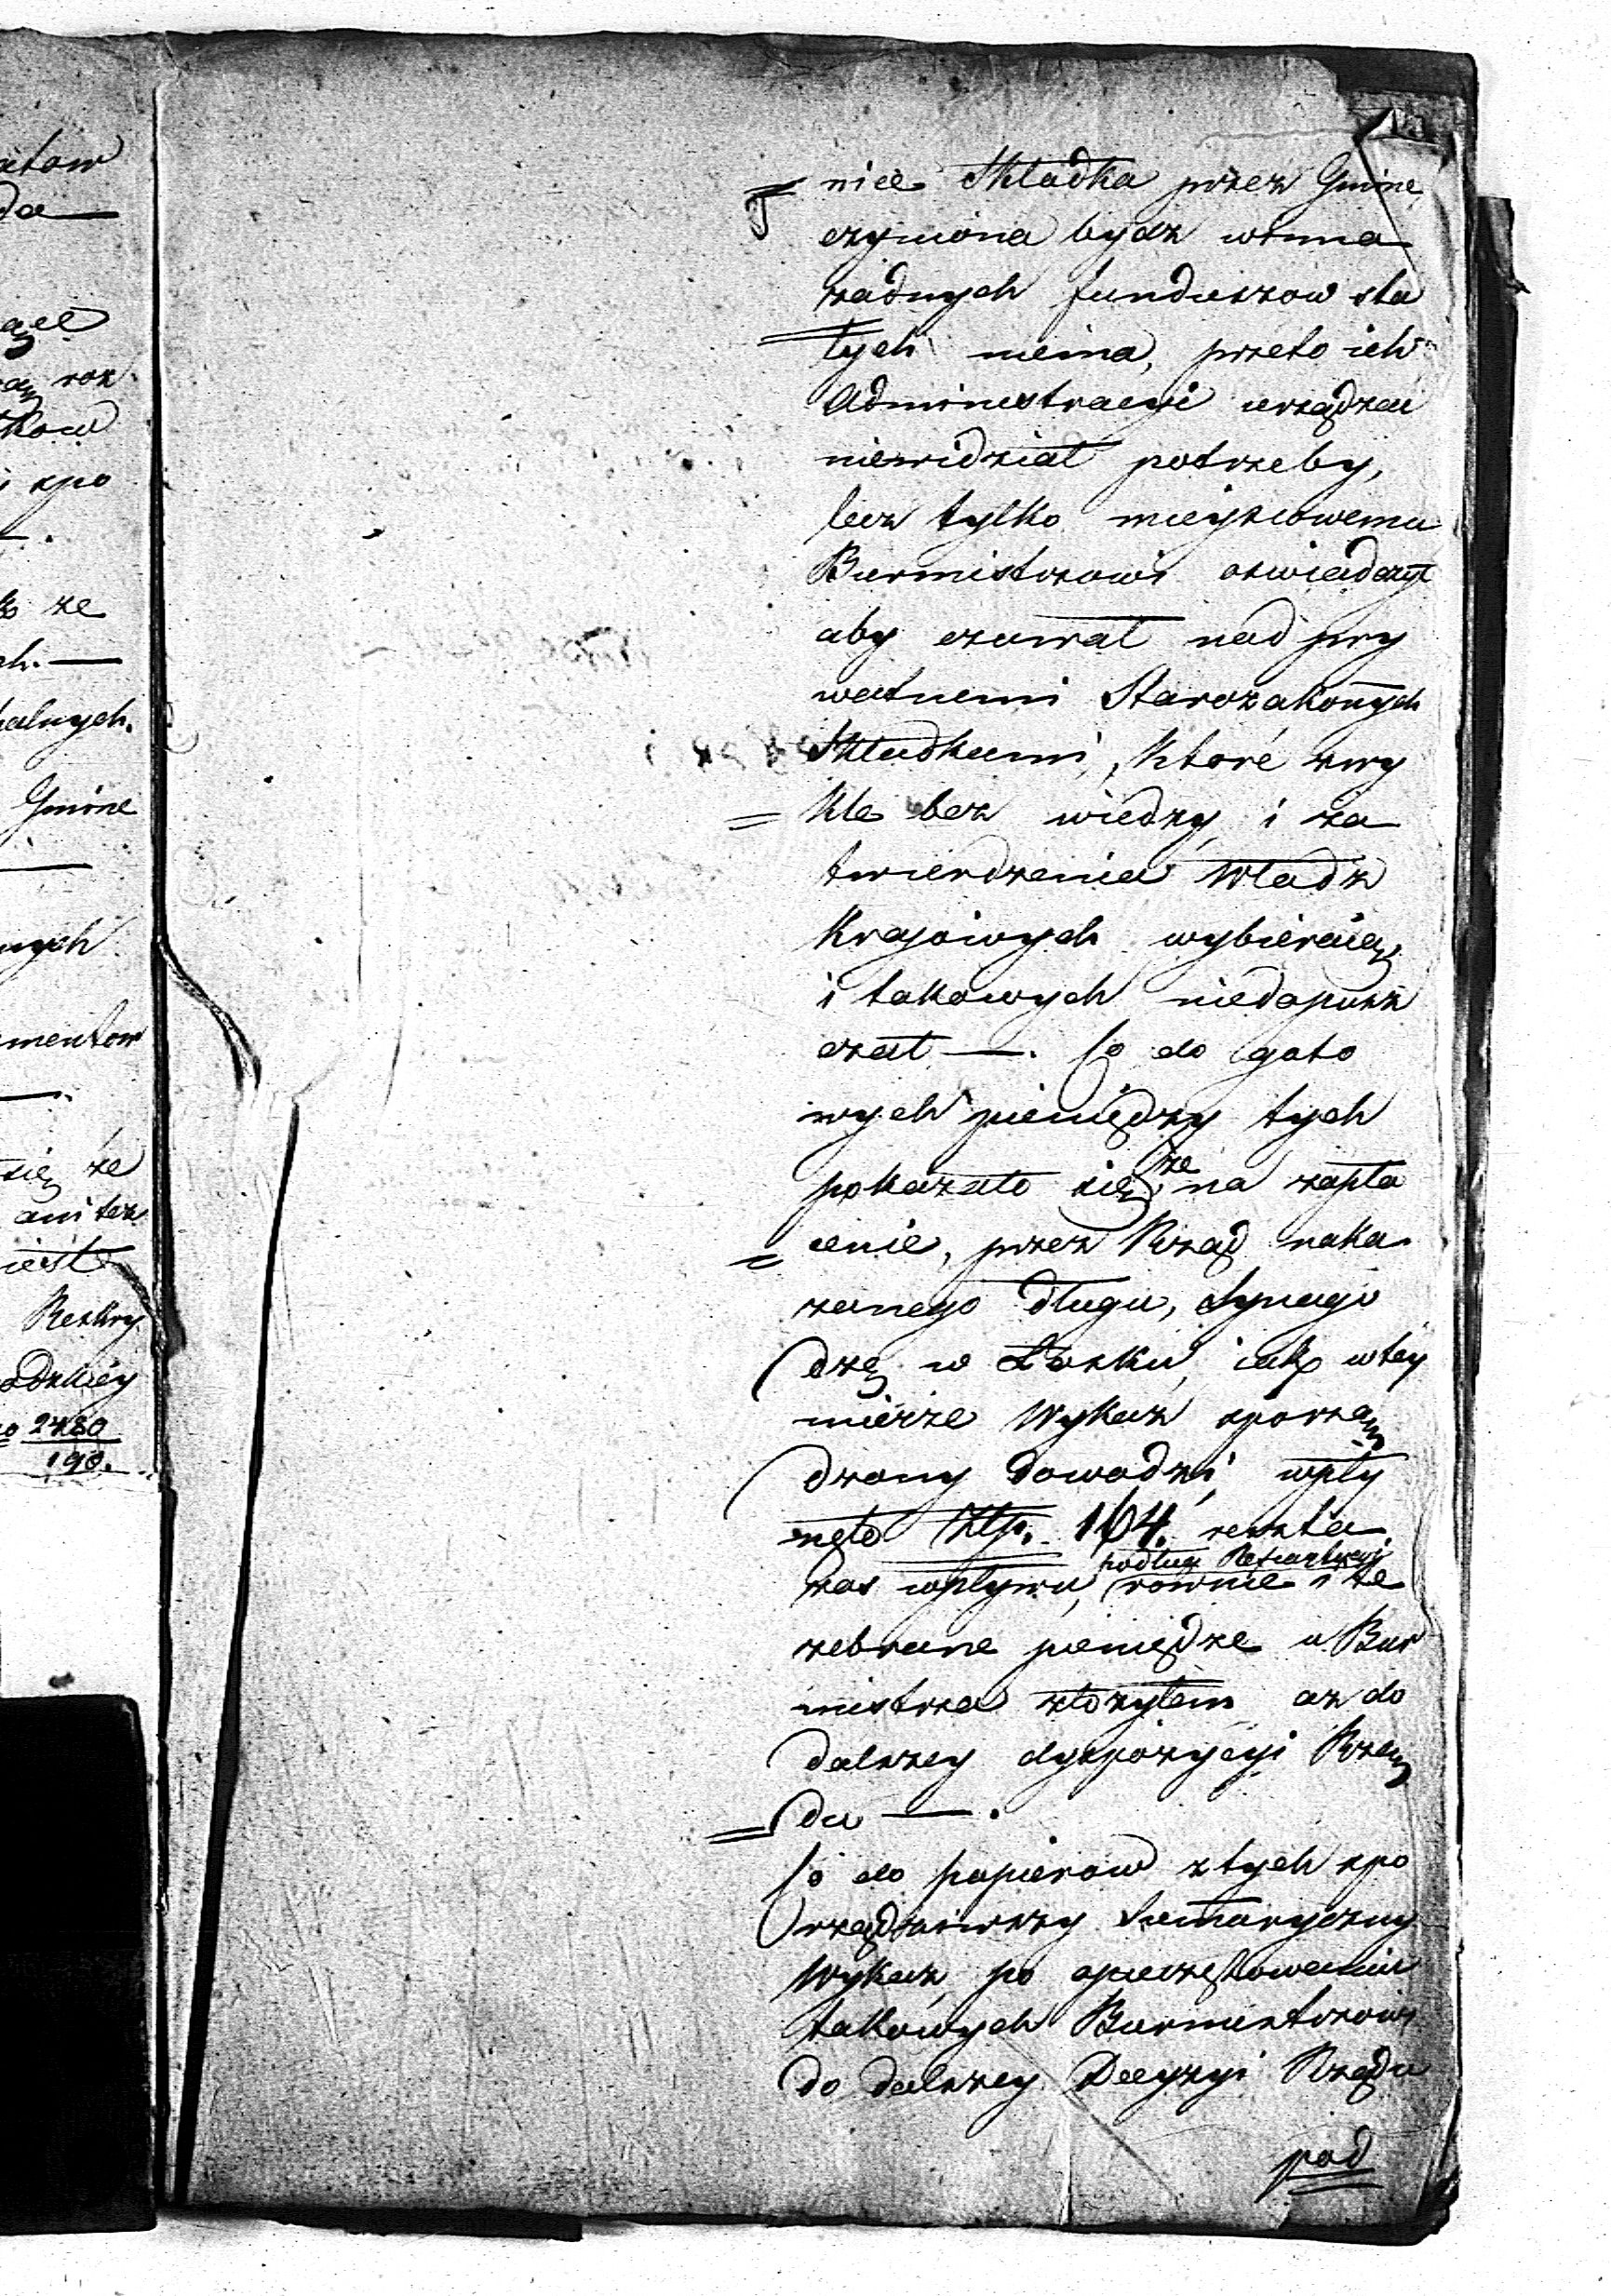 atow
da
ącé
rok
tkow
i spo
że
ch.
kalnych.
Gmine
nych
mentow
się że
ani też
iest
Reskry
adzkiéy
2480
190.
nice Składka przez Gminę
czyniona bydz winna
żadnych funduszow sta
łych niema, przeto ich
Administracyi urządzać
niewidział potrzeby,
lecz tylko mieyscowemu
Burmistrzowi oświadczył
aby czuwał nad pry
watnemi Starozakonnych
Składkami, które zwy
kle bez wiedzy i za
twierdzenia Władz
Krajowych wybieraią,
i takowych niedopusz
czał —. Co do goto
wych pieniędzy tych
pokazało się, że na zapła
cenie, przez Rząd naka
zanego długu, Synago
dze w Łasku, iak w tey
mierze Wykaz sporzą
dzony dowodzi, wpły
nęło Złp. 164. reszta
zas wpływu, podług
równie i te
zebrane pieniądze u Bur
mistrza złożyłem aż do
dalszey dyspozycyi Rzą
du —.
Co do papierow z tych spo
rządziwszy Sumaryczny
Wykaz, po opieczętowaniu
takowych Burmistrzowi
do dalszey Decyzyi Rządu
pod